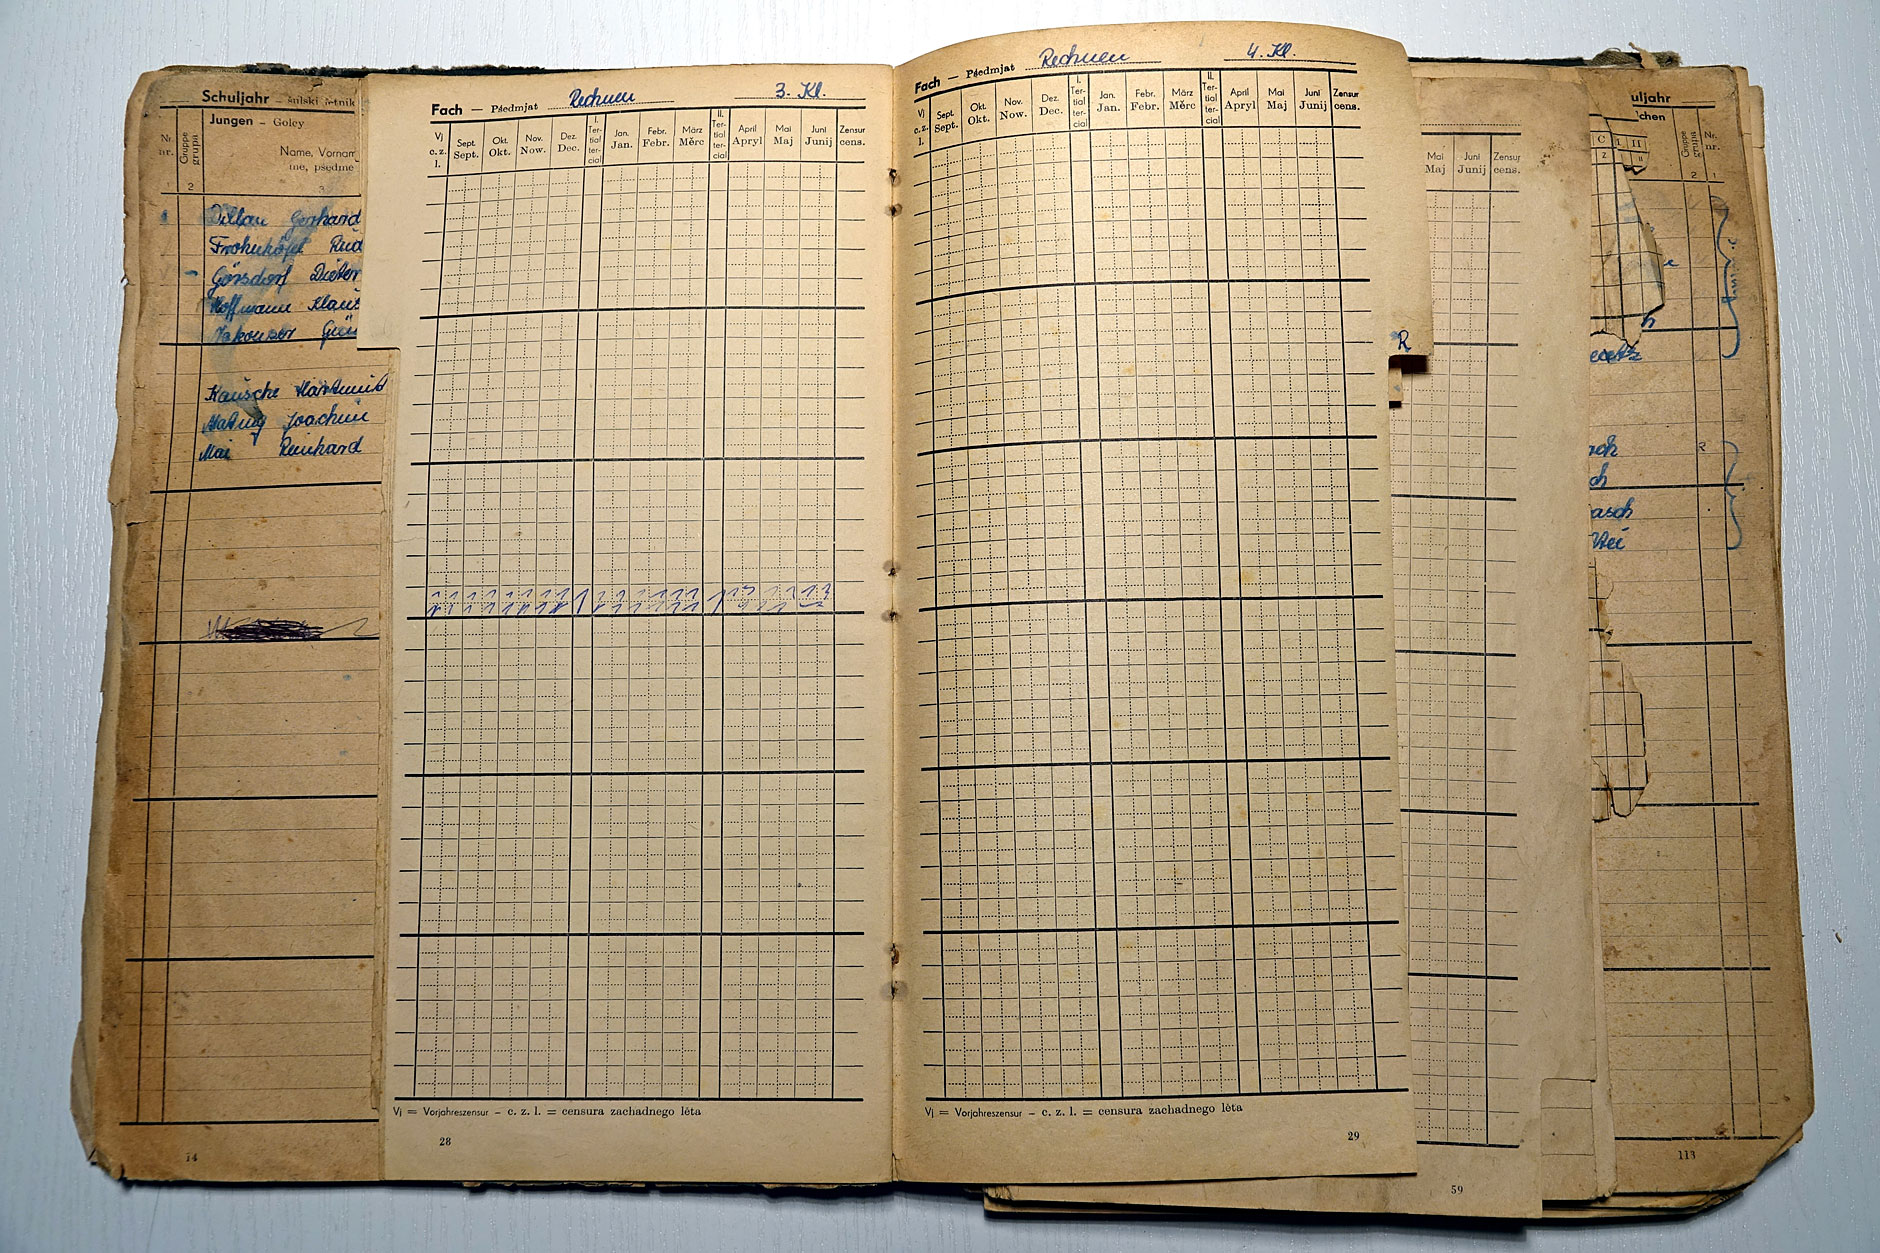 Schuljahr – šulski lětnik
Jungen – Golcy
Nr.
nr.
Gruppe
grupa
Name, Vornam
me, pśedme
2
3
Gerhard
Görsdorf Dieter
Hoffmann Klaus
Kausche Hartmut
Joachim
Mai Reinhard
14
Fach — Pśedmjat Rechnen 3. Kl.
Vj
c. z.
l.
Sept.
Sept.
Okt.
Okt.
Nov.
Now.
Dez.
Dec.
I.
Ter-
tial
ter-
cial
Jan.
Jan.
Febr.
Febr.
März
Měrc
II.
Ter-
tial
ter-
cial
April
Apryl
Mai
Maj
Juni
Junij
Zensur
cens.
Vj = Vorjahreszensur – c. z. l. = censura zachadnego lěta
28
Fach — Pśedmjat Rechnen 4. Kl.
Vj
c. z.
l.
Sept.
Sept.
Okt.
Okt.
Nov.
Now.
Dez.
Dec.
I.
Ter-
tial
ter-
cial
Jan.
Jan.
Febr.
Febr.
März
Měrc
II.
Ter-
tial
ter-
cial
April
Apryl
Mai
Maj
Juni
Junij
Zensur
cens.
R
Vj = Vorjahreszensur – c. z. l. = censura zachadnego lěta
29
Mai
Maj
Juni
Junij
Zensur
cens.
59
uljahr
chen
I II
Gruppe
grupa
Nr.
nr.
2
1
113